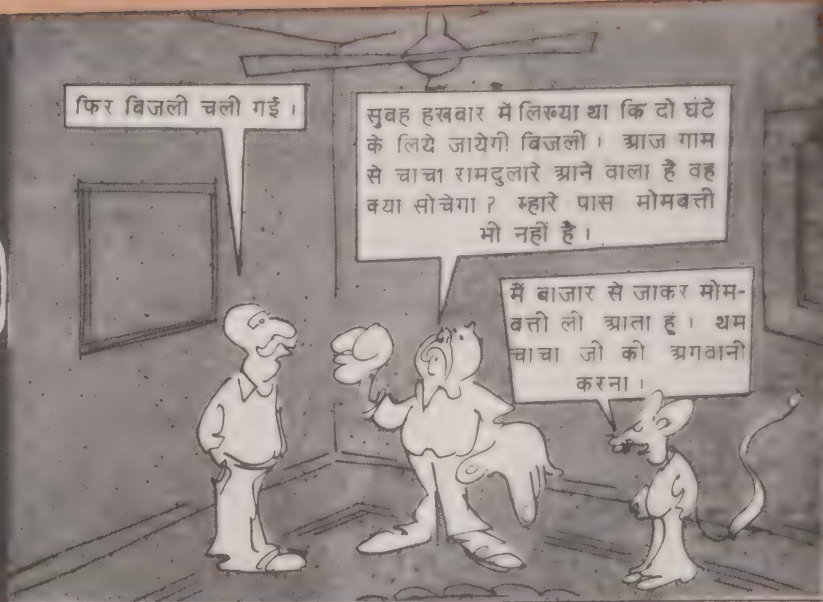 फिर बिजली चली गई ।
सुबह हखबार में लिख्या था कि दो घंटे
के लिये जायेगी बिजली । आज गाम
से चाचा रामदुलारे आने वाला है वह
क्या सोचेगा ? म्हारे पास मोमबत्ती
भी नहीं है ।
मैं बाजार से जाकर मोम-
बत्ती ली आता हूं । थम
चाचा जी की अगवानी
करना ।